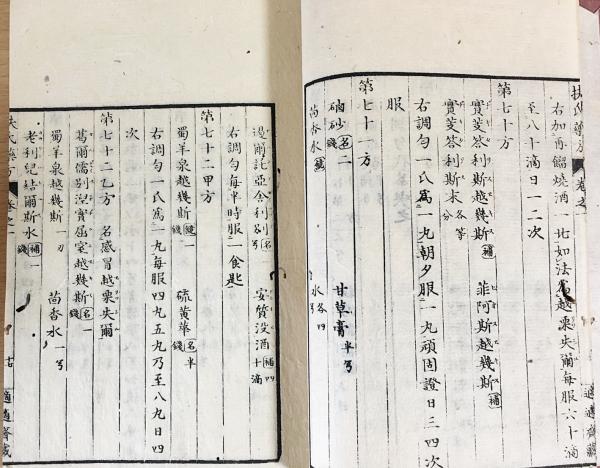 扶氏藥方 卷之 適適齋藏
右加再餾燒酒一七如法爲越栗失爾每服六十滴
至八十滴日一二次
第七十方
實芰荅利斯越幾斯補 菲阿斯越幾斯補
實芰荅利斯末各等分
右調勻一氏爲一丸朝夕服一丸頑固證日三四次
服
第七十一方
硇砂名二錢 甘草膏半弓
茴香水 水各四弓
邊爾記亞舍利別名 安質没酒補四十滴
右調勻每半時服一食匙
第七十二甲方
蜀羊泉越幾斯一錢 硫黄華名半錢
右調勻一氏爲一丸每服四丸五丸乃至八九日四
次
第七十二乙方 名感冒越栗失爾
葛爾儒別涅實屈窒越幾斯名一錢
蜀羊泉越幾斯一刀 茴香水一弓
老利兒結爾斯水補一錢
扶氏藥方 卷之一 適適齋藏